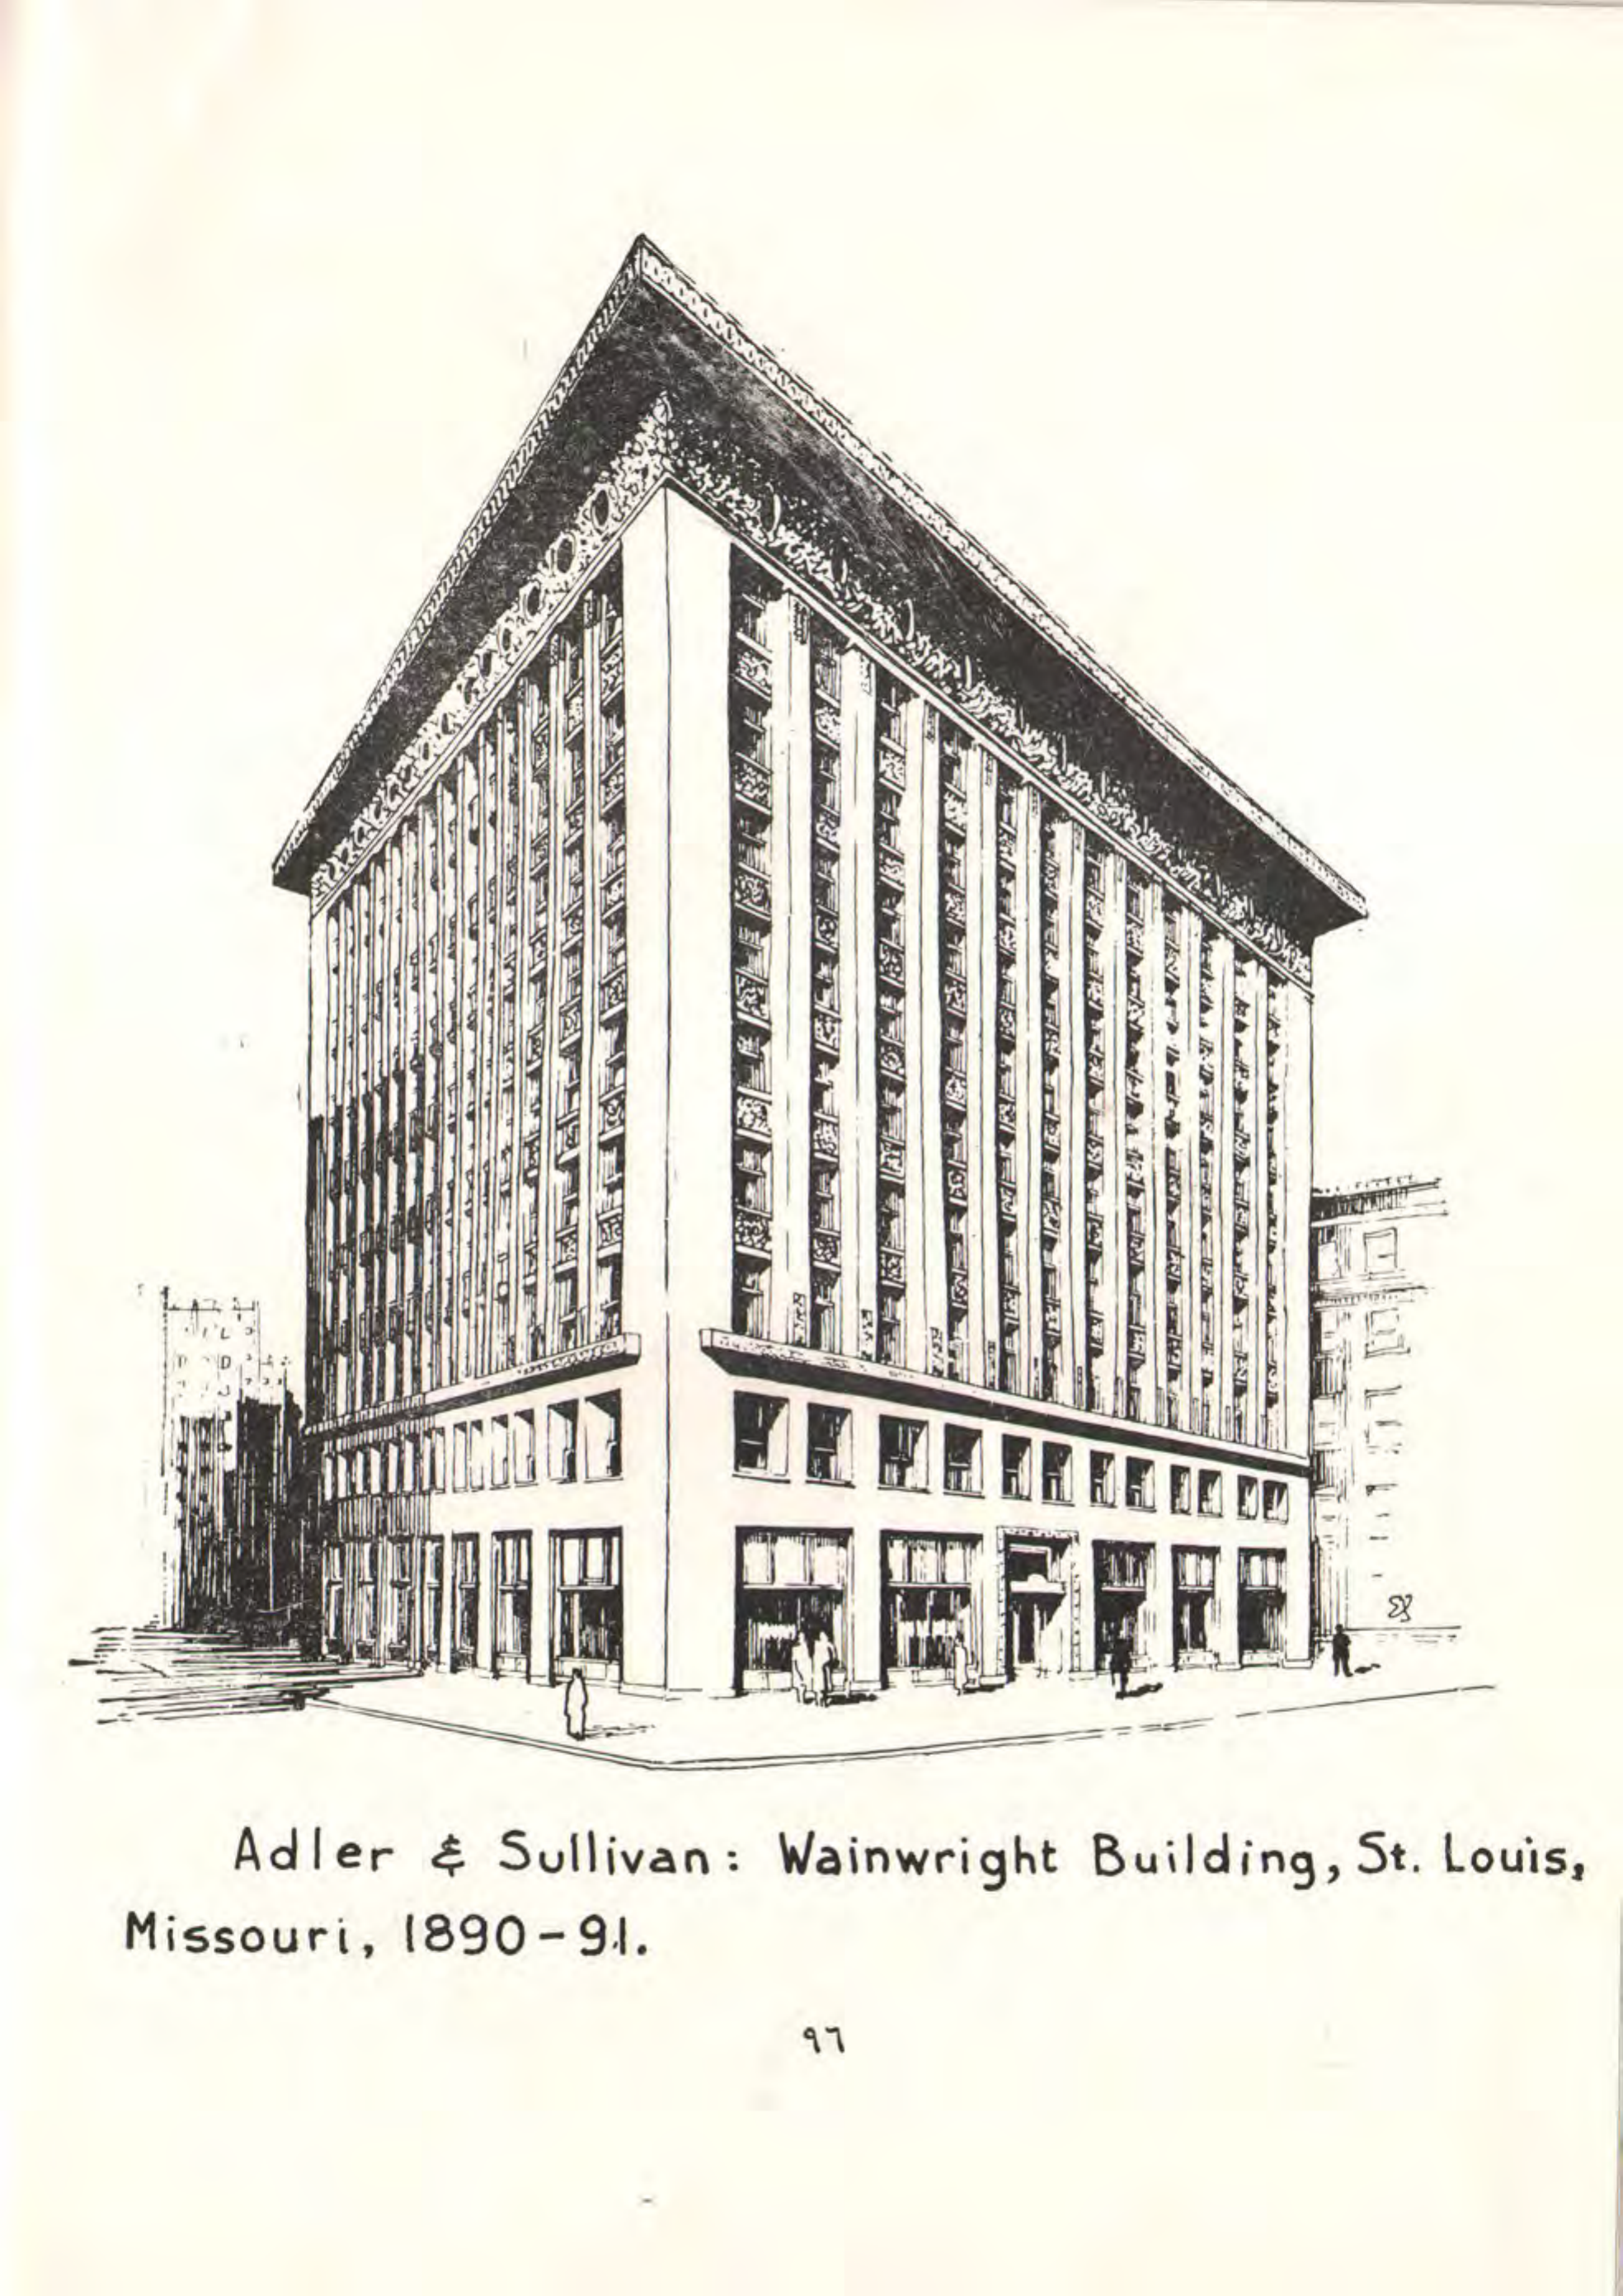 Adler & Sullivan: Wainwright Building, St. Louis,
Missouri, 1890-91.
97